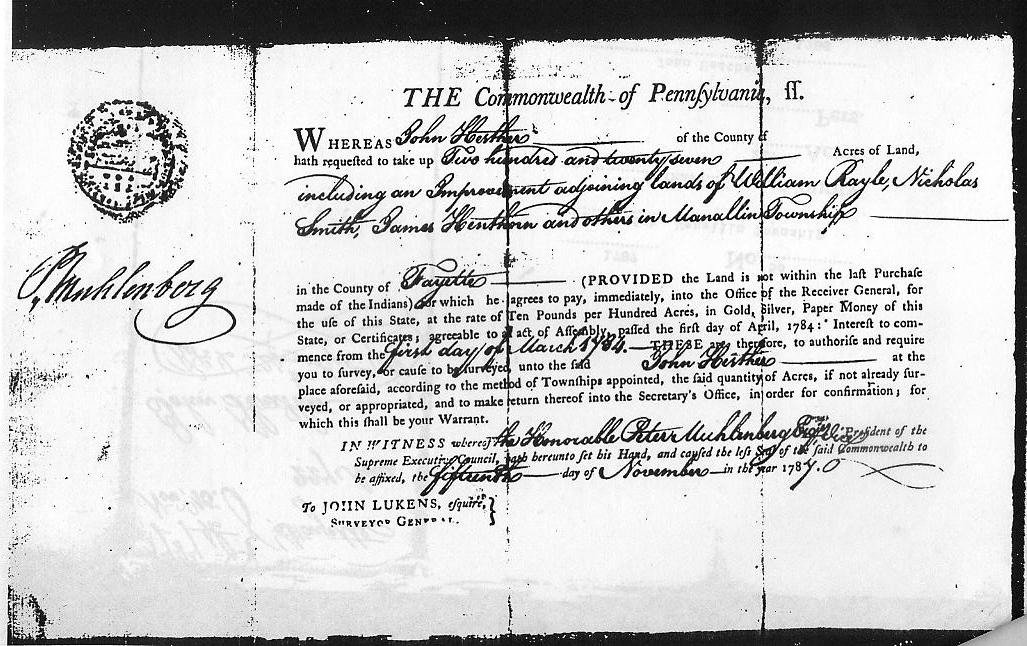 THE Commonwealth of Pennſylvania, ſſ.
WHEREAS John Hesther of the County of
hath requested to take up Two hundred and twenty seven Acres of Land,
including an Improvement adjoining lands of William Rayle, Nicholas
Smith, James Henthorn and others in Manallin Township
P. Muhlenberg
in the County of Fayette (PROVIDED the Land is not within the laſt Purchaſe
made of the Indians) for which he agrees to pay, immediately, into the Office of the Receiver General, for
the uſe of this State, at the rate of Ten Pounds per Hundred Acres, in Gold, Silver, Paper Money of this
State, or Certificates; agreeable to act of Aſſembly, paſſed the firſt day of April, 1784: Intereſt to com-
mence from the first day of March 1784. THESE are therefore, to authoriſe and require
you to ſurvey, or cauſe to be ſurveyed, unto the ſaid John Hesther at the
place aforeſaid, according to the method of Townſhips appointed, the ſaid quantity of Acres, if not already ſur-
veyed, or appropriated, and to make return thereof into the Secretary's Office, in order for confirmation; for
which this ſhall be your Warrant.
IN WITNESS whereof the Honorable Peter Muhlenberg Esqr. Vice Preſident of the
Supreme Executive Council, hath hereunto ſet his Hand, and cauſed the leſs Seal of the ſaid Commonwealth to
be affixed, the fifteenth day of November in the year 1787.
To JOHN LUKENS, eſquire,
SURVEYOR GENERAL.